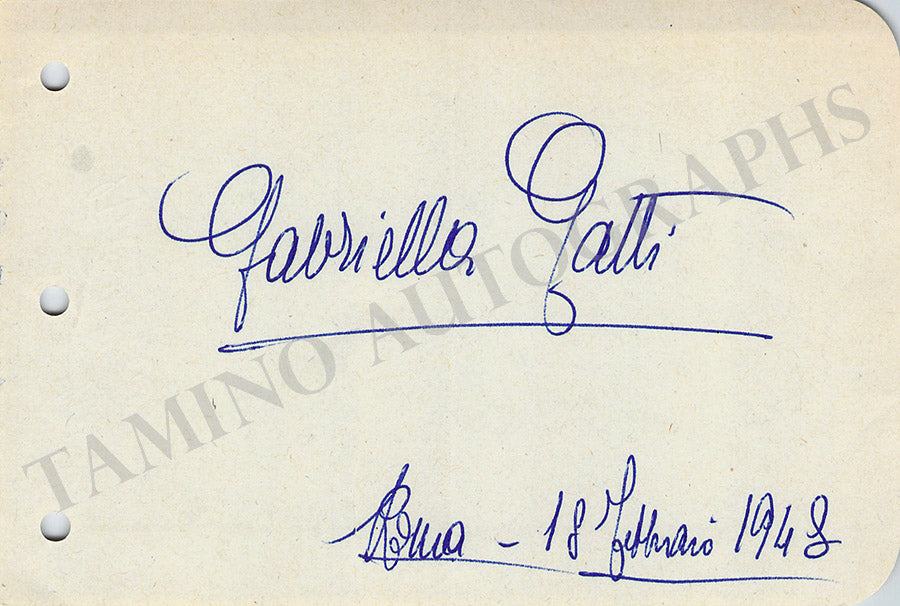 Gabriella Gatti
Roma - 18 Febbraio 1948
TAMINO AUTOGRAPHS